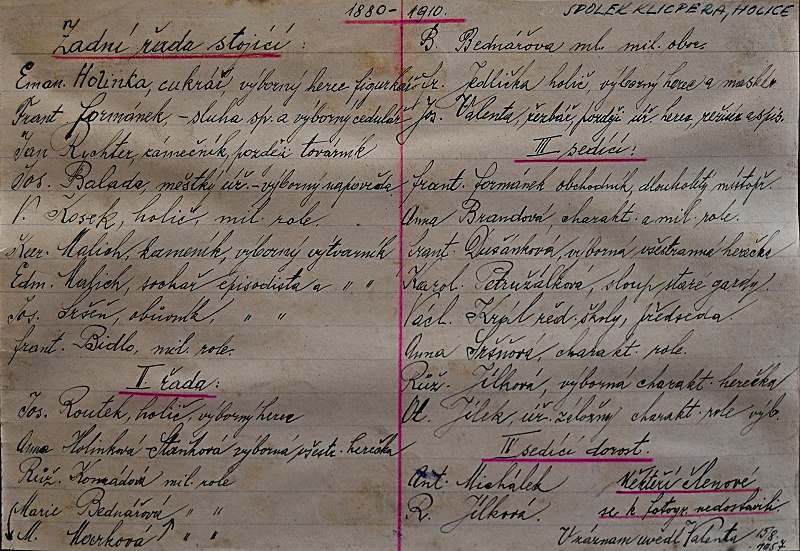 1880-1910. SPOLEK KLICPERA, HOLICE
Zadní řada stojící:
Eman. Holinka, cukrář, výborný herec figurkář
Frant Formánek, - sluha sp. a výborný cedulář
Jan Rychter, kamečník, později továrník
Jos. Balada, městký úř. - výborný napověda
V. Kosek, holič, mil. role.
Malich, kameník, výborný vytvarník
Edm. Malich, sochař episodista a " "
Jos. Sršeň, obuvník, " "
Frant. Bidlo, mil. role.
II řada:
Jos. Routek, holič, výborný herec
Anna Holinková Staňkova výborná všestr. herečka
Růž. Konrádová mil. role
Marie Bednářová " "
M. " "
B. Bednářova ml. mil. obor.
Fr. Jedlička holič, výborný herec a maskér
Jos. Valenta, řezbář, později úř. herec, režisér a spis.
III sedící:
Frant. Formánek obchodník, dlouholitý místopř.
Anna Brandová charakt. a mil. role.
Frant. Dušánková, výborná všestranná herečka
Karol. Petružálková, sloup staré gardy.
Václ. Král řed. školy, předseda.
Anna Sršňová, charakt. role.
Růž. Jílková, výborná charakt. herečka
Ot. Jílek, úř. záložny charakt. role výb.
IV sedící dorost.
Ant. Michálek Někteří členové
R. Jílková. se k fotogr. nedostavili.
V záznam uvedl Valenta 15/8. 1957